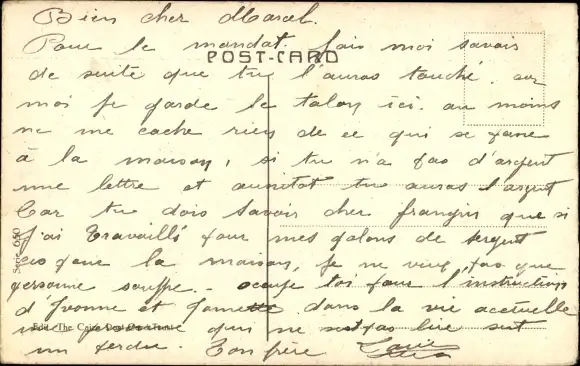 Bien cher Marcel.
Pour le mandat. fais moi savoir
POST-CARD
de suite que tu l'auras touché. car
moi je garde le talon ici. au moins
ne me cache rien de ce qui se passe
à la maison, si tu n'a pas d'argent
une lettre et aussitot tu auras l'argent
Car tu dois savoir cher frangin que si
j'ai travaillé pour mes galons de sergent
pour la maison, je ne veux pas que
personne souffre. occupe toi pour l'instruction
d'Yvonne et dans la vie actuelle
une personne qui ne sait pas lire est
un perdu. Ton frère Louis
Serie 650
Edit. The Cairo